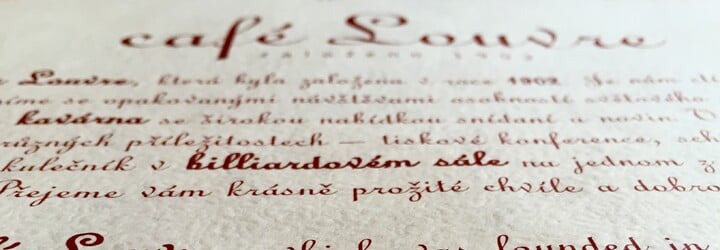 café Louvre
založeno 1902
Louvre, která byla založena v roce 1902. Je nám
se opakovanými návštěvami osobností světového
kavárna se širokou nabídkou snídaní a novin.
různých příležitostech — tiskové konference,
kulečník v billiardovém sále na jednom z
Přejeme vám krásně prožité chvíle a
which was founded in